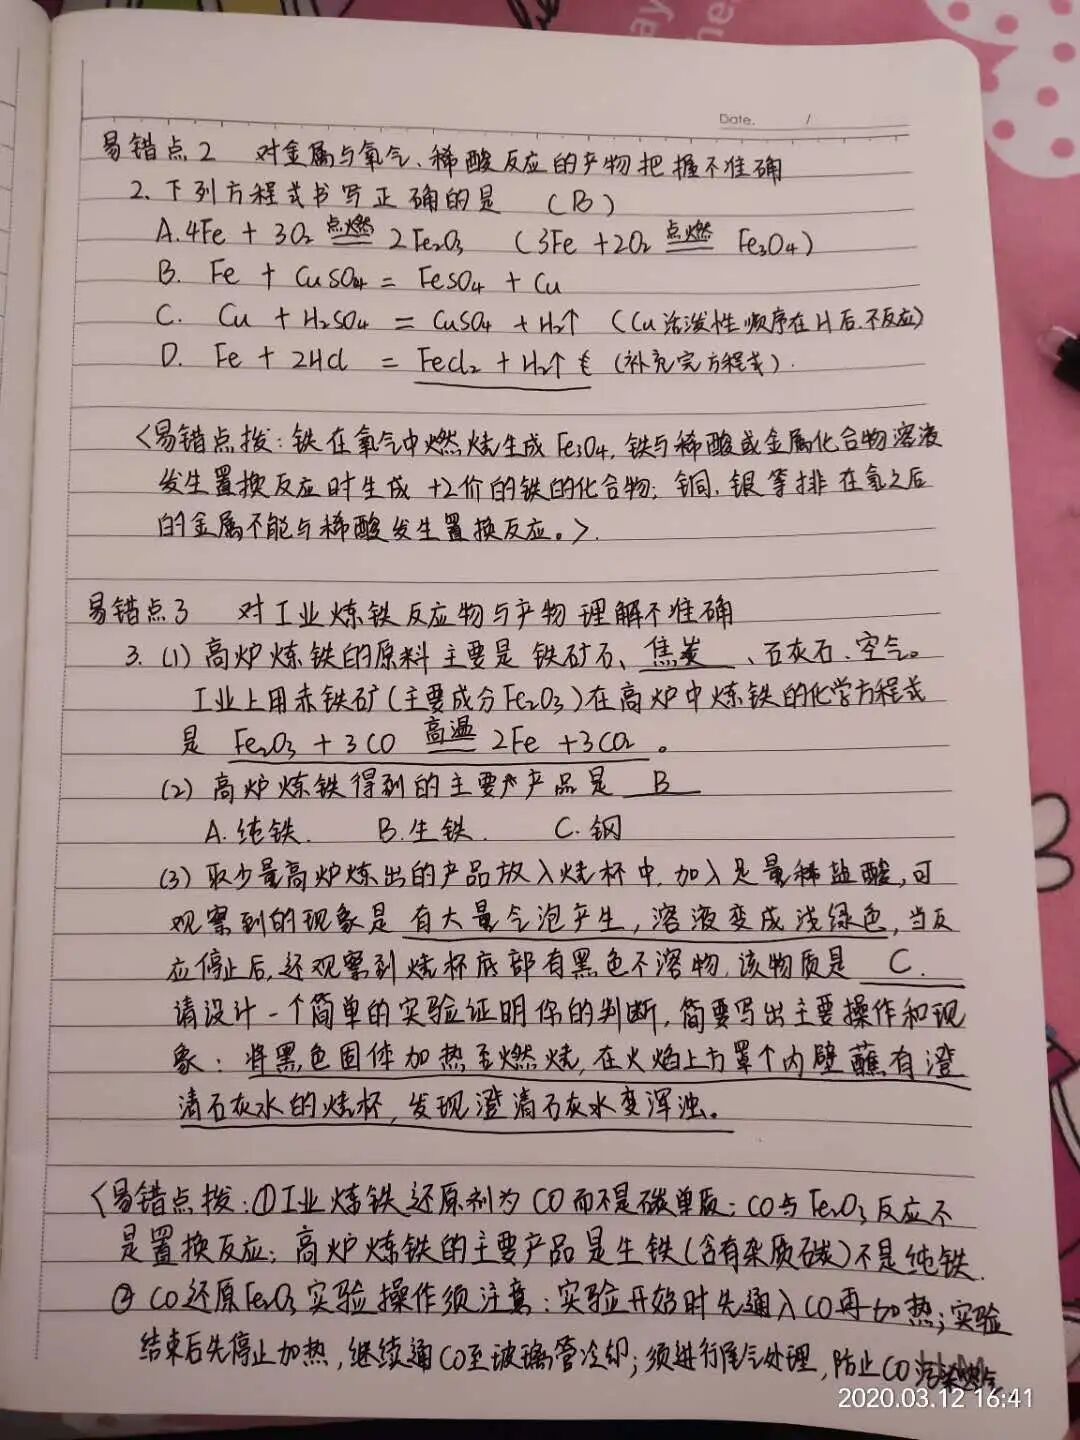 Date. /
易错点2 对金属与氧气、稀酸反应的产物把握不准确
2. 下列方程式书写正确的是 (B)
A. 4Fe + 3O₂ 点燃══ 2Fe₂O₃ (3Fe + 2O₂ 点燃══ Fe₃O₄)
B. Fe + CuSO₄ = FeSO₄ + Cu
C. Cu + H₂SO₄ = CuSO₄ + H₂↑ (Cu活泼性顺序在H后.不反应)
D. Fe + 2HCl = FeCl₂ + H₂↑ (补充完方程式).
<易错点拨:铁在氧气中燃烧生成Fe₃O₄,铁与稀酸或金属化合物溶液
发生置换反应时生成+2价的铁的化合物;铜、银等排在氢之后
的金属不能与稀酸发生置换反应。>.
易错点3 对工业炼铁反应物与产物理解不准确
3. (1) 高炉炼铁的原料主要是铁矿石、焦炭、石灰石、空气。
工业上用赤铁矿(主要成分Fe₂O₃)在高炉中炼铁的化学方程式
是 Fe₂O₃ + 3CO 高温══ 2Fe + 3CO₂ 。
(2) 高炉炼铁得到的主要产品是 B
A. 纯铁. B. 生铁. C. 钢
(3) 取少量高炉炼出的产品放入烧杯中,加入足量稀盐酸,可
观察到的现象是 有大量气泡产生,溶液变成浅绿色,当反
应停止后,还观察到烧杯底部有黑色不溶物,该物质是 C.
请设计一个简单的实验证明你的判断,简要写出主要操作和现
象:将黑色固体加热至燃烧,在火焰上方罩个内壁蘸有澄
清石灰水的烧杯,发现澄清石灰水变浑浊。
<易错点拨:①工业炼铁还原剂为CO而不是碳单质;CO与Fe₂O₃反应不
是置换反应;高炉炼铁的主要产品是生铁(含有杂质碳)不是纯铁.
② CO还原Fe₂O₃实验操作须注意:实验开始时先通入CO再加热;实验
结束后先停止加热,继续通CO至玻璃管冷却;须进行尾气处理,防止CO污染空气
2020.03.12 16:41